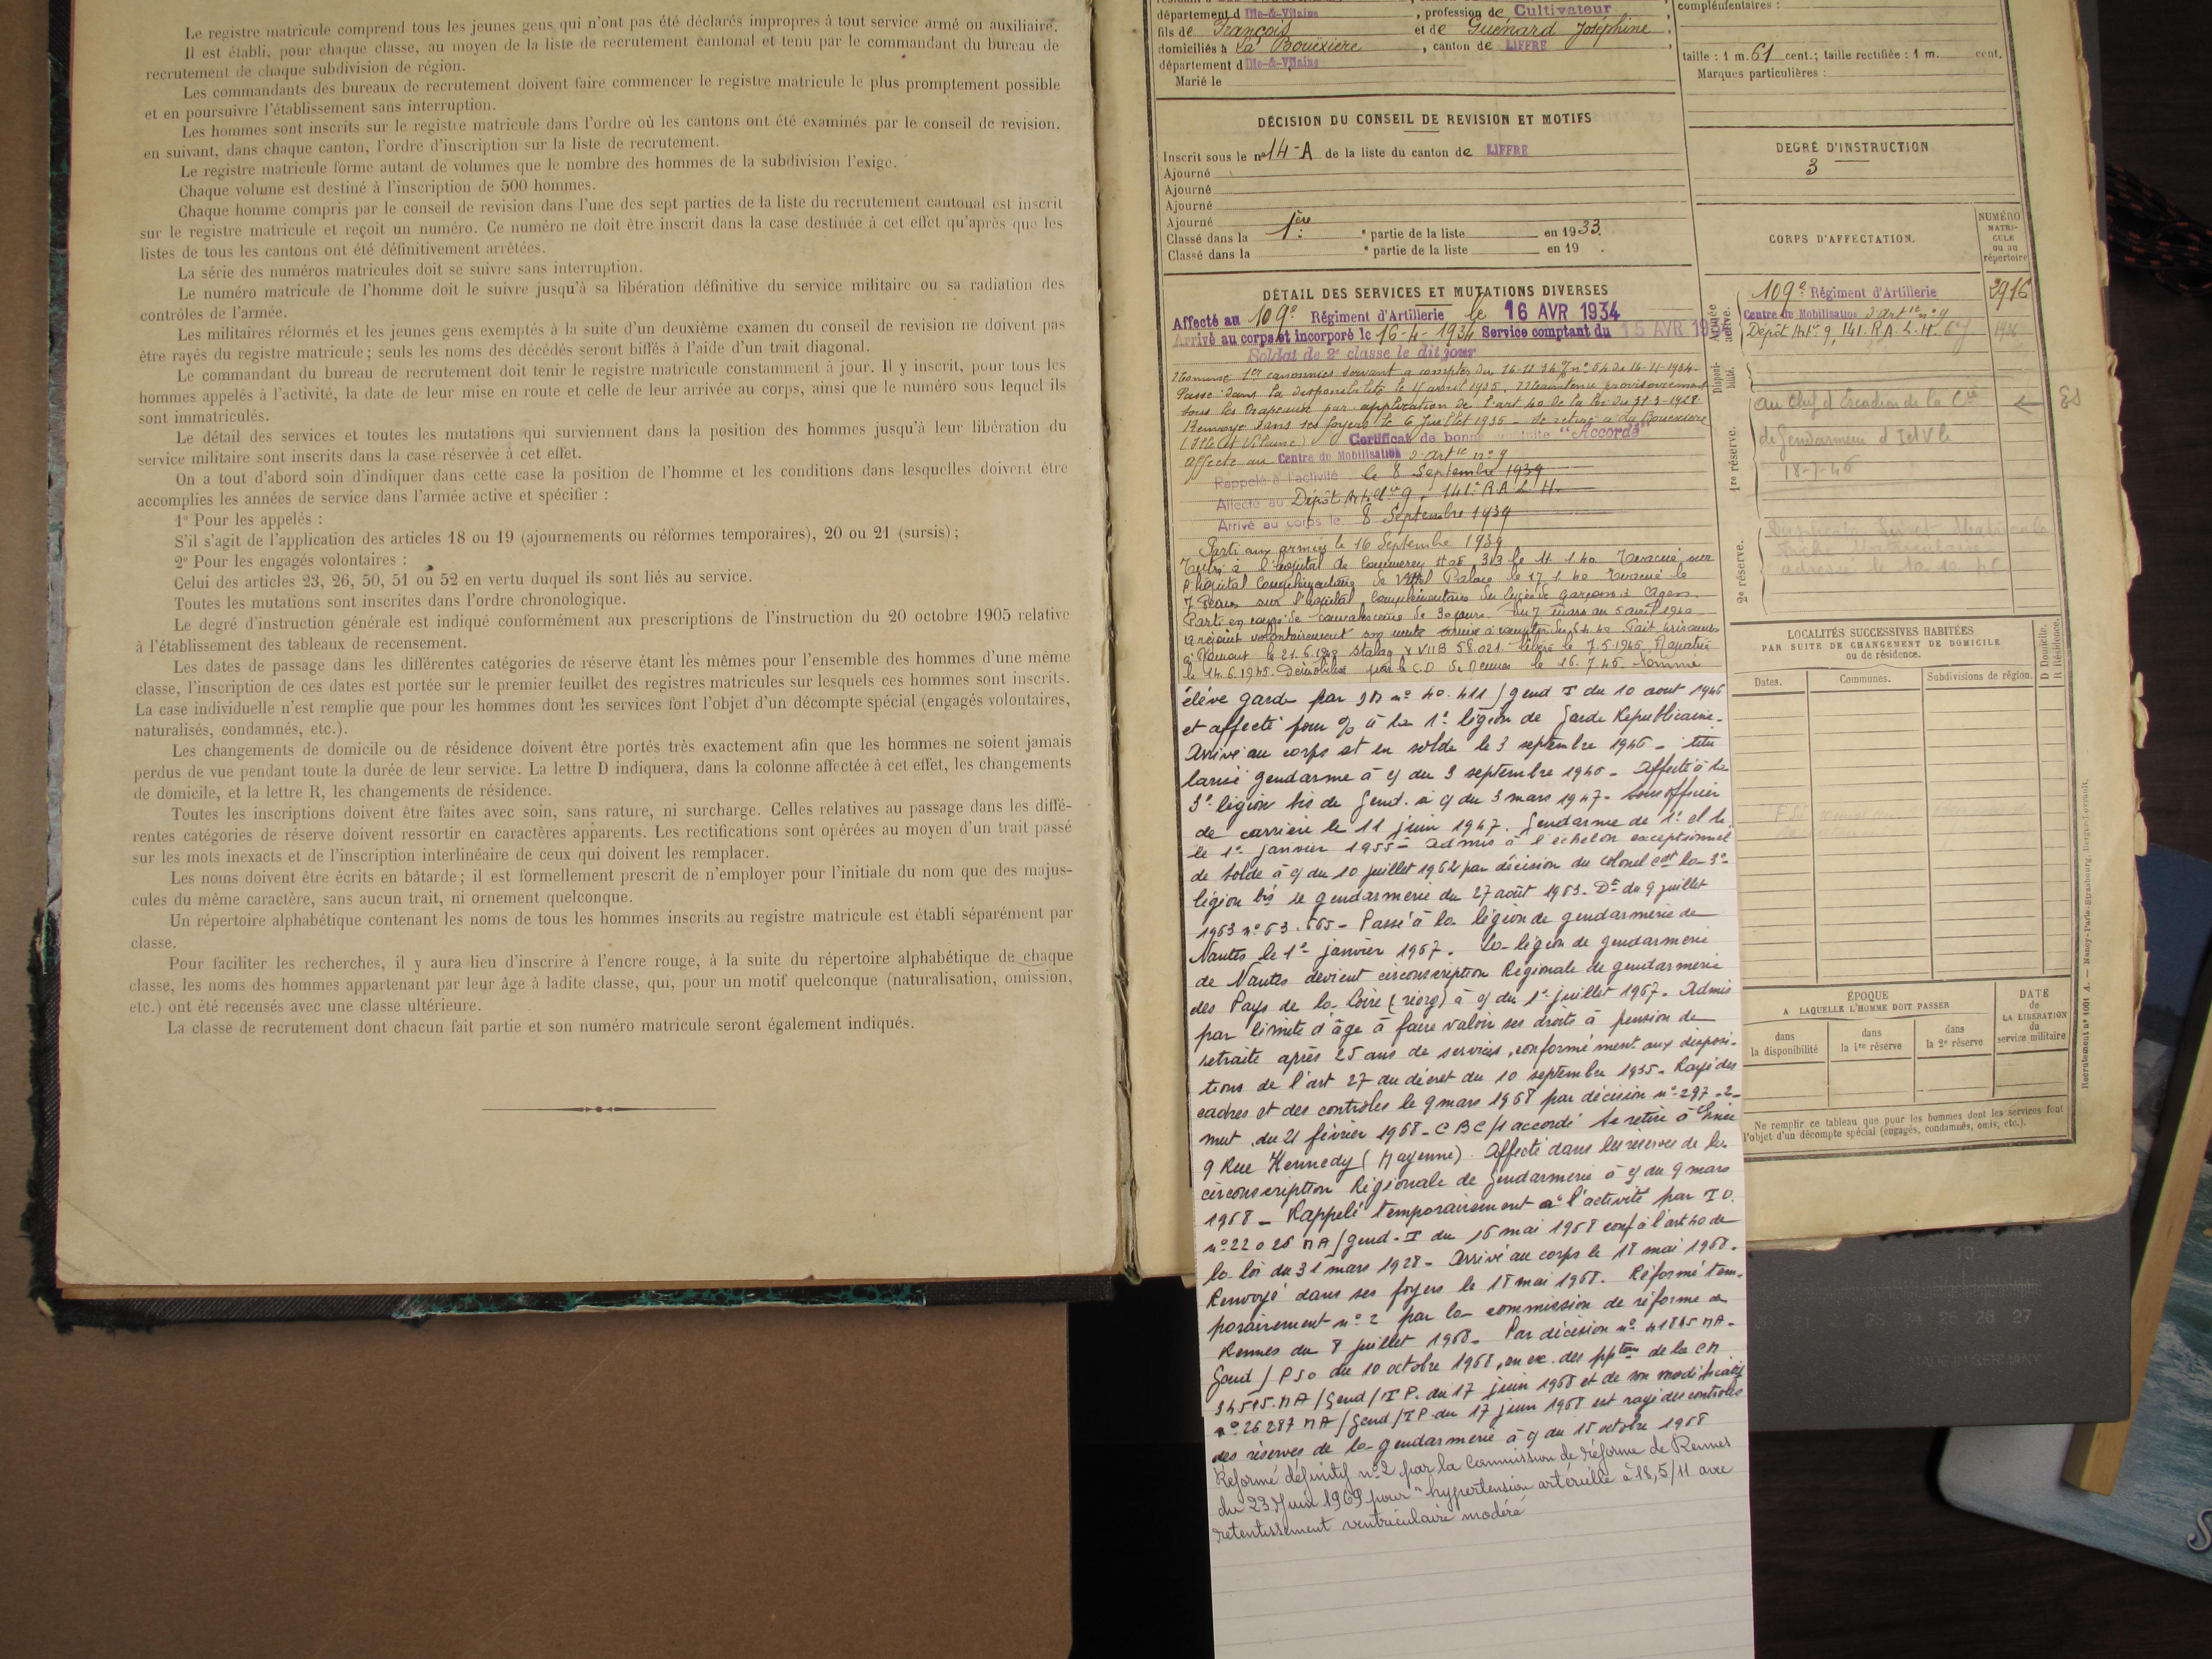 Le registre matricule comprend tous les jeunes gens qui n'ont pas été déclarés impropres à tout service armé ou auxiliaire.
Il est établi, pour chaque classe, au moyen de la liste de recrutement cantonal et tenu par le commandant du bureau de
recrutement de chaque subdivision de région.
Les commandants des bureaux de recrutement doivent faire commencer le registre matricule le plus promptement possible
et en poursuivre l'établissement sans interruption.
Les hommes sont inscrits sur le registre matricule dans l'ordre où les cantons ont été examinés par le conseil de revision,
en suivant, dans chaque canton, l'ordre d'inscription sur la liste de recrutement.
Le registre matricule forme autant de volumes que le nombre des hommes de la subdivision l'exige.
Chaque volume est destiné à l'inscription de 500 hommes.
Chaque homme compris par le conseil de revision dans l'une des sept parties de la liste du recrutement cantonal est inscrit
sur le registre matricule et reçoit un numéro. Ce numéro ne doit être inscrit dans la case destinée à cet effet qu'après que les
listes de tous les cantons ont été définitivement arrêtées.
La série des numéros matricules doit se suivre sans interruption.
Le numéro matricule de l'homme doit le suivre jusqu'à sa libération définitive du service militaire ou sa radiation des
contrôles de l'armée.
Les militaires réformés et les jeunes gens exemptés à la suite d'un deuxième examen du conseil de revision ne doivent pas
être rayés du registre matricule ; seuls les noms des décédés seront biffés à l'aide d'un trait diagonal.
Le commandant du bureau de recrutement doit tenir le registre matricule constamment à jour. Il y inscrit, pour tous les
hommes appelés à l'activité, la date de leur mise en route et celle de leur arrivée au corps, ainsi que le numéro sous lequel ils
sont immatriculés.
Le détail des services et toutes les mutations qui surviennent dans la position des hommes jusqu'à leur libération du
service militaire sont inscrits dans la case réservée à cet effet.
On a tout d'abord soin d'indiquer dans cette case la position de l'homme et les conditions dans lesquelles doivent être
accomplies les années de service dans l'armée active et spécifier :
1° Pour les appelés :
S'il s'agit de l'application des articles 18 ou 19 (ajournements ou réformes temporaires), 20 ou 21 (sursis) ;
2° Pour les engagés volontaires :
Celui des articles 23, 26, 50, 51 ou 52 en vertu duquel ils sont liés au service.
Toutes les mutations sont inscrites dans l'ordre chronologique.
Le degré d'instruction générale est indiqué conformément aux prescriptions de l'instruction du 20 octobre 1905 relative
à l'établissement des tableaux de recensement.
Les dates de passage dans les différentes catégories de réserve étant les mêmes pour l'ensemble des hommes d'une même
classe, l'inscription de ces dates est portée sur le premier feuillet des registres matricules sur lesquels ces hommes sont inscrits.
La case individuelle n'est remplie que pour les hommes dont les services font l'objet d'un décompte spécial (engagés volontaires,
naturalisés, condamnés, etc.).
Les changements de domicile ou de résidence doivent être portés très exactement afin que les hommes ne soient jamais
perdus de vue pendant toute la durée de leur service. La lettre D indiquera, dans la colonne affectée à cet effet, les changements
de domicile, et la lettre R, les changements de résidence.
Toutes les inscriptions doivent être faites avec soin, sans rature, ni surcharge. Celles relatives au passage dans les diffé-
rentes catégories de réserve doivent ressortir en caractères apparents. Les rectifications sont opérées au moyen d'un trait passé
sur les mots inexacts et de l'inscription interlinéaire de ceux qui doivent les remplacer.
Les noms doivent être écrits en bâtarde ; il est formellement prescrit de n'employer pour l'initiale du nom que des majus-
cules du même caractère, sans aucun trait, ni ornement quelconque.
Un répertoire alphabétique contenant les noms de tous les hommes inscrits au registre matricule est établi séparément par
classe.
Pour faciliter les recherches, il y aura lieu d'inscrire à l'encre rouge, à la suite du répertoire alphabétique de chaque
classe, les noms des hommes appartenant par leur âge à ladite classe, qui, pour un motif quelconque (naturalisation, omission,
etc.) ont été recensés avec une classe ultérieure.
La classe de recrutement dont chacun fait partie et son numéro matricule seront également indiqués.
département d Ille-&-Vilaine, profession de Cultivateur
fils de François et de Guénard Joséphine
domiciliés à La Bouëxière, canton de LIFFRÉ
département d Ille-&-Vilaine
Marié le
complémentaires :
taille : 1 m. 61 cent.; taille rectifiée : 1 m. cent.
Marques particulières :
DÉCISION DU CONSEIL DE REVISION ET MOTIFS
Inscrit sous le n° 14-A de la liste du canton de LIFFRÉ
Ajourné
Ajourné
Ajourné
Ajourné
Classé dans la 1ère partie de la liste en 1933.
Classé dans la e partie de la liste en 19 .
DEGRÉ D'INSTRUCTION
3
CORPS D'AFFECTATION.
NUMÉRO MATRI-CULE ou au répertoire
Armée active.
109e Régiment d'Artillerie 2916
Centre de Mobilisation d'Artie n° 9
Dépôt Artie 9, 141. R.A.L.H.
Disponi-bilité.
1re réserve.
au Chef d'Escadron de la Cie
de Gendarmerie d'I et V le
18-7-46
2e réserve.
DÉTAIL DES SERVICES ET MUTATIONS DIVERSES
Affecté au 109e Régiment d'Artillerie le 16 AVR 1934
Arrivé au corps et incorporé le 16-4-1934 Service comptant du 15 AVR 1934
Soldat de 2e classe le dit jour
Nommé 1er canonnier servant à compter du 16-11-34 n° 54 du 16-11-1934
Passé dans la disponibilité le 15 avril 1935. Maintenu provisoirement
sous les Drapeaux par application de l'art 40 de la loi du 31-3-1928.
Renvoyé dans ses foyers le 6 Juillet 1935 - Se retire à La Bouexière
(Ille et Vilaine) Certificat de bonne conduite "Accordé"
Affecté au Centre de Mobilisation d'Artie n° 9
Rappelé à l'activité le 8 Septembre 1939
Affecté au Dépôt Artillie 9, 141e R A L H
Arrivé au corps le 8 Septembre 1939
Parti aux armées le 16 Septembre 1939
Entré à l'hôpital de Commercy HOE 303 le 11.1.40 Evacué sur
l'hôpital Complémentaire de Vittel Palace le 17.1.40 Evacué le
7 Février sur l'hôpital Complémentaire du lycée de garçons à Agen.
Parti en congé de convalescence de 30 jours du 7 mars au 5 avril 1940
a rejoint volontairement son unité à compter du 6.4.40 Fait prisonnier
à le 21.6.1940 Stalag XVIIB 58.021. libéré le 7.5.1945. Rapatrié
le 14.6.1945. Démobilisé par le C.D de Rennes le 16.7.45. Nommé
élève garde par DM n° 40.411/gend T du 10 août 1946
et affecté pour % à la 1e légion de Garde Républicaine.
Arrivé au corps et en solde le 3 septembre 1946 - titu
larisé gendarme à cy du 3 septembre 1946 - Affecté à la
3e légion bis de Gend. à cy du 3 mars 1947 - Sous officier
de carrière le 11 juin 1947. Gendarme de 1e cl le
le 1er janvier 1955 - admis à l'échelon exceptionnel
de solde à cy du 10 juillet 1962 par décision du Colonel Cdt la 3e
légion bis de gendarmerie du 27 août 1963. Dt du 9 juillet
1963 n° 63.665 - Passé à la légion de gendarmerie de
Nantes le 1er janvier 1967. La légion de gendarmerie
de Nantes devient circonscription Régionale de gendarmerie
des Pays de la Loire (réorg) à cy du 1er juillet 1967. Admis
par limite d'âge à faire valoir ses droits à pension de
retraite après 25 ans de services, conformément aux disposi-
tions de l'art 27 du décret du 10 septembre 1935. Rayé des
cadres et des contrôles le 9 mars 1968 par décision n° 297-2-
mut. du 21 février 1968 - CBC/1 accordé Se retire à
9 Rue Kennedy (Mayenne). Affecté dans les réserves de la
circonscription Régionale de Gendarmerie à cy du 9 mars
1968 - Rappelé temporairement à l'activité par T.O.
n° 22026 MA/gend.T du 16 mai 1968 conf à l'art 40 de
la loi du 31 mars 1928. Arrivé au corps le 18 mai 1968.
Renvoyé dans ses foyers le 18 mai 1968. Réformé tem-
porairement n° 2 par la commission de réforme de
Rennes du 8 juillet 1968. Par décision n° 41845 MA-
Gend/PSO du 10 octobre 1968, en ex. des pptons de la CM
34595.MA/Gend/TP. du 17 juin 1968 et de son modificatif
n° 26287 MA/Gend/TP du 17 juin 1968 est rayé des contrôles
des réserves de la gendarmerie à cy du 15 octobre 1968
Réformé définitif n° 2 par la Commission de réforme de Rennes
du 23 Juin 1969 pour "hypertension artérielle à 18,5/11 avec
retentissement ventriculaire modéré
LOCALITÉS SUCCESSIVES HABITÉES
PAR SUITE DE CHANGEMENT DE DOMICILE
ou de résidence.
D Domicile.
R Résidence.
Dates. Communes. Subdivisions de région.
ÉPOQUE
A LAQUELLE L'HOMME DOIT PASSER
dans la disponibilité
dans la 1re réserve
dans la 2e réserve
DATE de LA LIBÉRATION du service militaire
Ne remplir ce tableau que pour les hommes dont les services font
l'objet d'un décompte spécial (engagés, condamnés, omis, etc.).
Recrutement n° 1001 A. — Nancy-Paris-Strasbourg, Berger-Levrault.